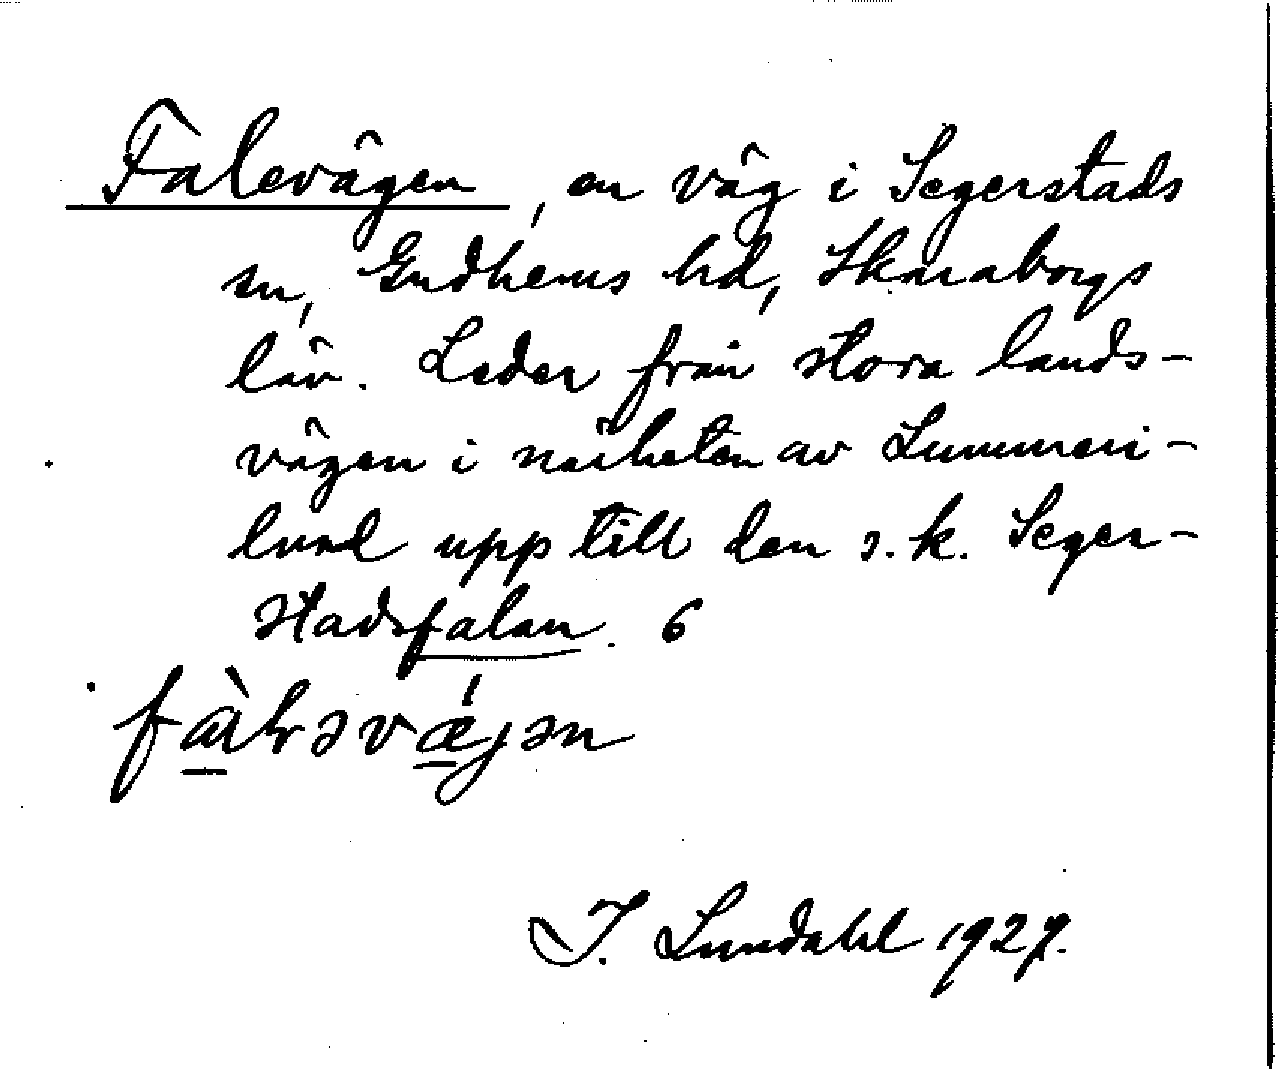 Falevägen, en väg i Segerstads
sn, Gudhems hd, Skaraborgs
län. Leder från stora lands-
vägen i närheten av Lummeri-
lund upp till den s.k. Seger-
stadsfalan. 6
I. Lundahl 1927.